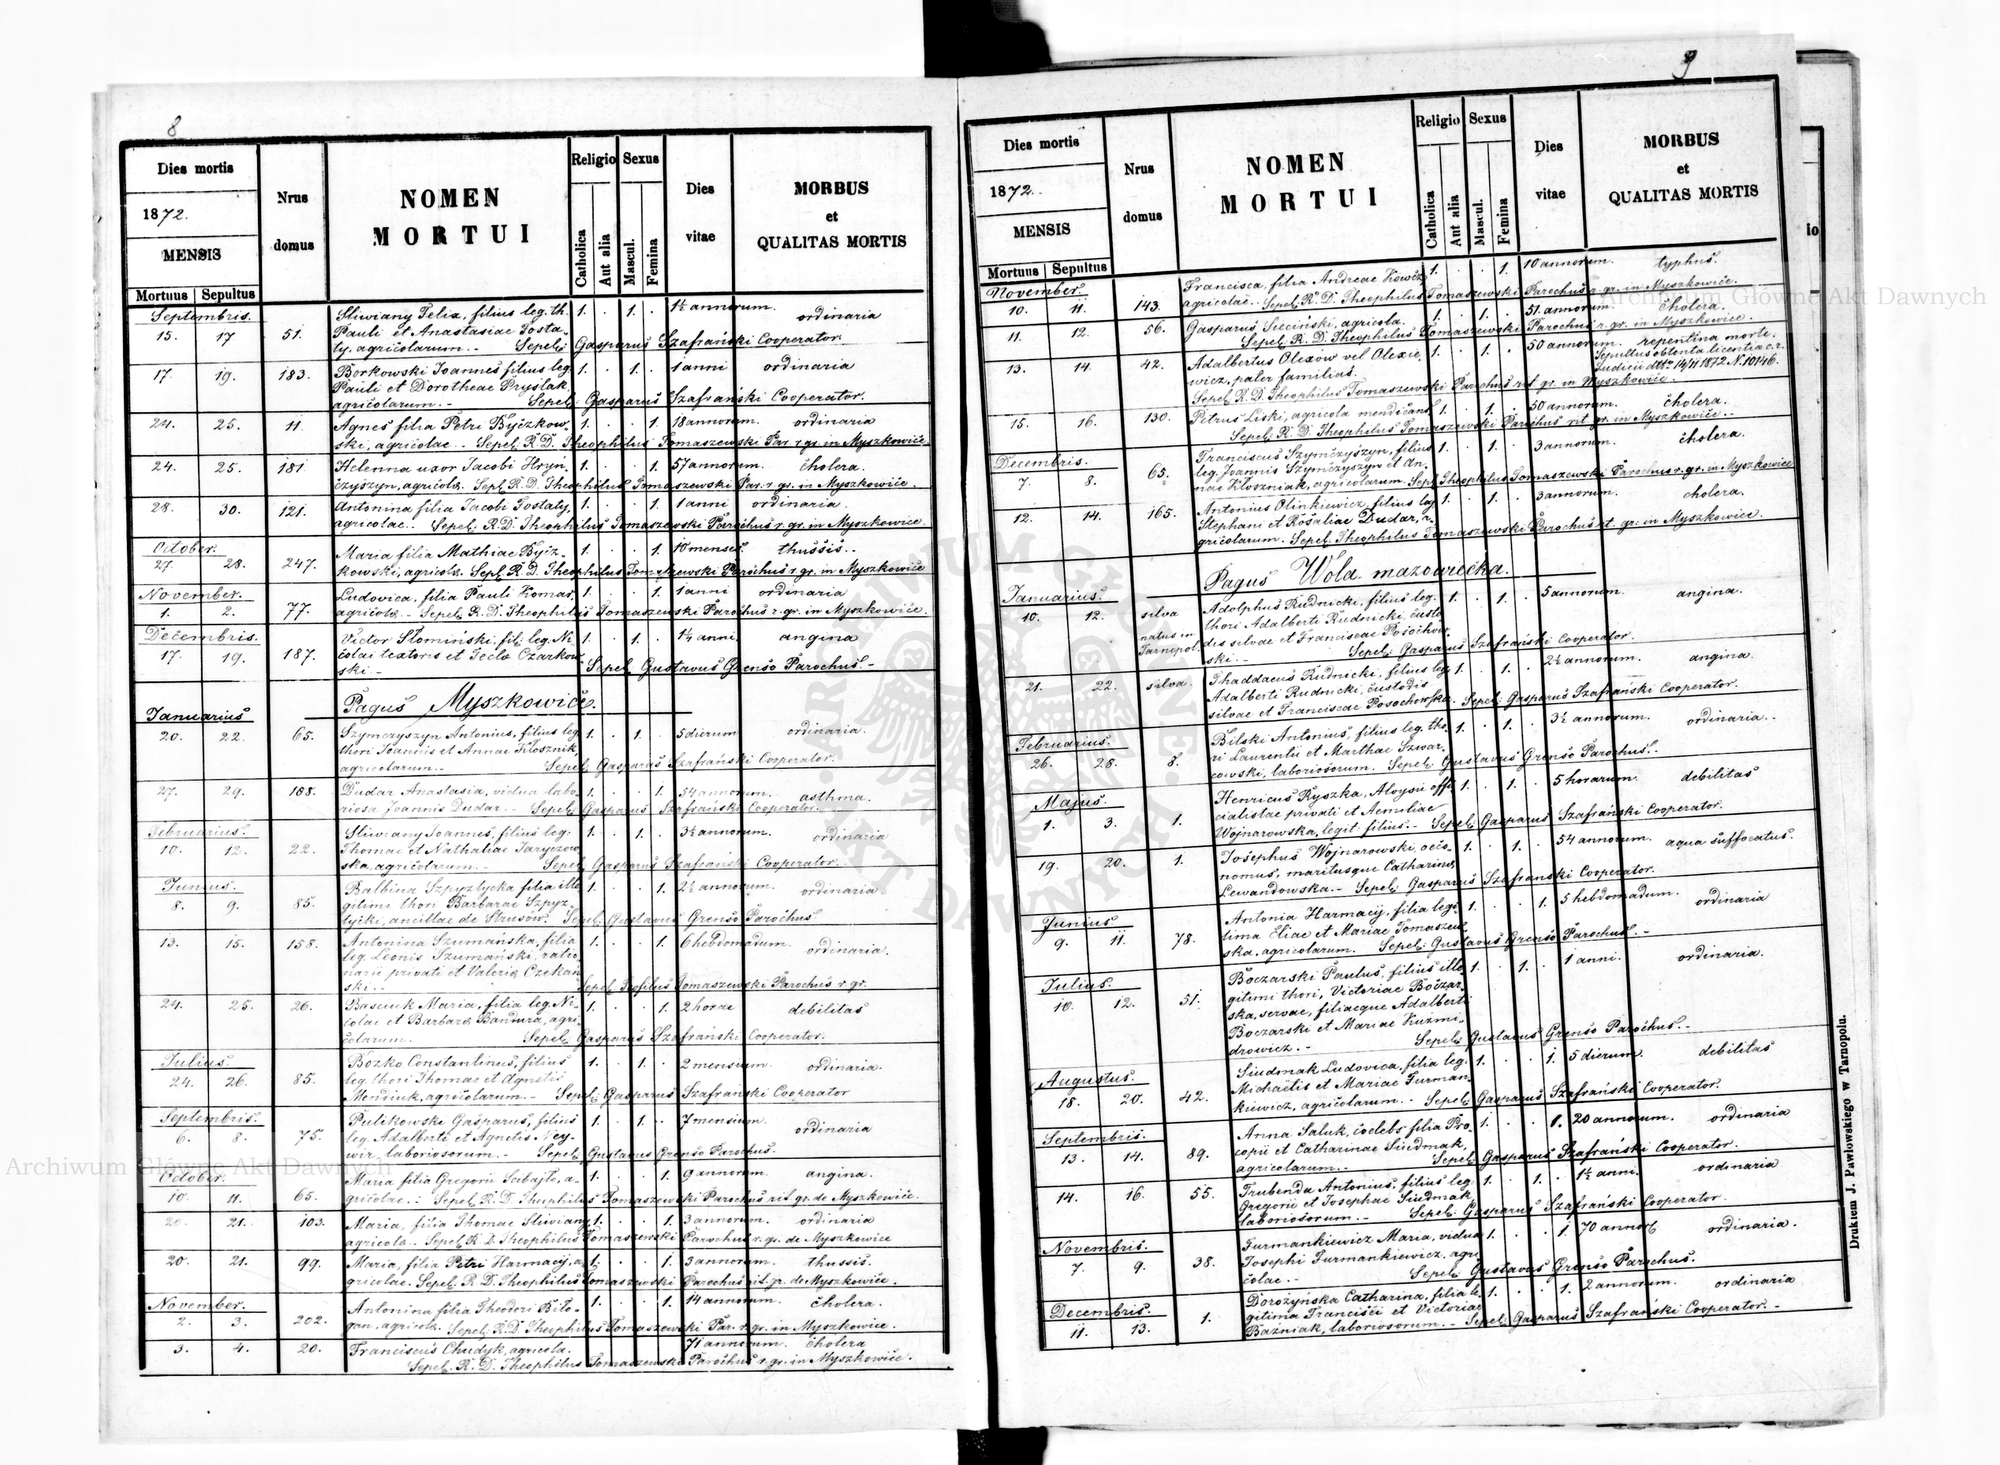 8
Dies mortis
1872.
MENSIS
Mortuus Sepultus
Nrus domus
NOMEN MORTUI
Religio
Catholica
Aut alia
Sexus
Mascul.
Femina
Dies vitae
MORBUS et QUALITAS MORTIS
Septembris.
15. 17 51. Sliwiany Felix, filius leg. th. 1. 1. 1½ annorum. ordinaria
Pauli et Anastasiae Posta-
ty, agricolarum. - Sepel: Gasparus Szafrański Cooperator.
17. 19. 183. Borkowski Joannes filius leg. 1. 1. 1 anni ordinaria
Pauli et Dorotheae Pryslak
agricolarum. - Sepel: Gasparus Szafrański Cooperator.
24. 25. 11. Agnes filia Petri Byczkow- 1. 1. 18 annorum. ordinaria
ski, agricolae. Sepel. R. D. Theophilus Tomaszewski Par. r. gr. in Myszkowice.
24. 25. 181 Helenna uxor Jacobi Hryn- 1. 1. 57 annorum. cholera.
czyszyn, agricola. Sepl. R. D. Theophilus Tomaszewski Par. r. gr. in Myszkowice.
28. 30. 121. Antonina filia Jacobi Postaty, 1. 1. 1 anni ordinaria
agricolae. Sepel. R. D. Theophilus Tomaszewski Parochus r. gr. in Myszkowice.
October.
27. 28. 247. Maria filia Mathiae Bycz- 1. 1. 10 menses. thussis.
kowski, agricola. Sepl. R. D. Theophilus Tomaszewski Parochus r. gr. in Myszkowice
November.
1. 2. 77. Ludovica, filia Pauli Komar, 1. 1. 1 anni ordinaria
agricola. - Sepel. R. D. Theophilus Tomaszewski Parochus r. gr. in Myszkowice.
Decembris.
17. 19. 187. Victor Słomiński, fil: leg. Ni- 1. 1. 1¼ anni angina
colai textoris et Tecla Czarkow-
ski - Sepel. Gustavus Grenso Parochus. -
Pagus Myszkowice.
Januarius
20. 22. 65. Szymczyszyn Antonius, filius leg. 1. 1. 5 dierum ordinaria.
thori Joannis et Annae Kłosznik,
agricolarum. - Sepel. Gasparus Szafrański Cooperator.
27. 29. 188. Dudar Anastasia, vidua labo- 1. 1. 54 annorum. asthma.
riosa Joannis Dudar. - Sepel. Gasparus Szafrański Cooperator.
Februarius.
10. 12. 22. Sliwiany Joannes, filius leg. 1. 1. 3½ annorum. ordinaria
Thomae et Nathaliae Jaryczow-
ska, agricolarum. - Sepel. Gasparus Szafrański Cooperator.
Junius.
8. 9. 85. Balbina Szpyzlycka filia ille- 1. 1. 2½ annorum. ordinaria
gitimi thori Barbarae Szpyz-
lycki, ancillae de Strusów. Sepel. Gustavus Grenso Parochus.
13. 15. 158. Antonina Szumańska, filia 1. 1. 6 hebdomadum. ordinaria.
leg. Leonis Szumański, ratio-
narii privati et Valeria Czekań-
ski. - Sepel. Tomaszewski Parochus r. gr.
24. 25. 26. Basciuk Maria, filia leg. Ni- 1. 1. 2 horae debilitas
colae et Barbara Bandura, agri-
colarum. Sepel. Gasparus Szafrański Cooperator.
Julius.
24. 26. 85. Bozko Constantinus, filius 1. 1. 2 mensium. ordinaria.
leg. thori Thomae et Agnetis
Mendiuk, agricolarum. - Sepel. Gasparus Szafrański Cooperator
Septembris.
6. 8. 75. Pulikowski Gasparus, filius 1. 1. 7 mensium. ordinaria
leg. Adalberti et Agnetis Ney-
wir, laboriosorum. - Sepel. Gustavus Grenso Parochus.
October.
10. 11. 65. Maria filia Gregorii Scibajto, a- 1. 1. 9 annorum. angina.
gricolae. - Sepel. R. D. Theophilus Tomaszewski Parochus rit. gr. de Myszkowice.
20. 21. 103. Maria, filia Thomae Sliwiany 1. 1. 3 annorum. ordinaria
agricola. Sepel. R. D. Theophilus Tomaszewski Parochus r. gr. de Myszkowice
20. 21. 99. Maria, filia Petri Harmacij, a- 1. 1. 3 annorum. thussis.
gricolae. Sepel. R. D. Theophilus Tomaszewski Parochus rit. gr. de Myszkowice.
November.
2. 3. 202. Antonina filia Theodori Biło- 1. 1. 14 annorum. cholera.
gan, agricola. Sepel. R. D. Theophilus Tomaszewski Par. r. gr. in Myszkowice.
3. 4. 20. Franciscus Chudyk, agricola. 71 annorum. cholera
Sepel. R. D. Theophilus Tomaszewski Parochus r. gr. in Myszkowice.
9
Dies mortis
1872.
MENSIS
Mortuus Sepultus
Nrus domus
NOMEN MORTUI
Religio
Catholica
Aut alia
Sexus
Mascul.
Femina
Dies vitae
MORBUS et QUALITAS MORTIS
November.
10. 11. 143. Francisca, filia Andreae Kowcz 1. 1. 10 annorum. typhus.
agricolae. Sepel. R. D. Theophilus Tomaszewski Parochus r. gr. in Myszkowice.
11. 12. 56. Gasparus Sieciński, agricola. 1. 1. 51. annorum. cholera.
Sepel. R. D. Theophilus Tomaszewski Parochus r. gr. in Myszkowice.
13. 14. 42. Adalbertus Olexów vel Olexie- 1. 1. 50 annorum. repentina morte.
wicz, pater familias. Sepultus obtenta licentia c. r.
Judicii ddto 14/11 1872 N. 10146.
Sepel. R. D. Theophilus Tomaszewski Parochus rit. gr. in Myszkowice.
15. 16. 130. Petrus Liski, agricola mendicans 1. 1. 50 annorum. cholera.
Sepel. R. D. Theophilus Tomaszewski Parochus rit. gr. in Myszkowice.
Decembris.
7. 8. 65. Franciscus Szymczyszyn, filius 1. 1. 3 annorum. cholera.
leg. Joannis Szymczyszyn et An-
nae Kłoszniak, agricolarum. Sepel. Theophilus Tomaszewski Parochus r. gr. in Myszkowice
12. 14. 165. Antonius Olinkiewicz, filius leg. 1. 1. 3 annorum. cholera.
Stephani et Rosaliae Dudar, a-
gricolarum. Sepel. Theophilus Tomaszewski Parochus rt. gr. in Myszkowice.
Pagus Wola mazowiecka.
Januarius.
10. 12. silva Adolphus Rudnicki, filius leg. 1. 1. 5 annorum. angina.
natus in Tarnopol. thori Adalberti Rudnicki, custo-
dis silvae et Franciscae Posochow-
ski. - Sepel. Gasparus Szafrański Cooperator.
21. 22. silva. Thaddaeus Rudnicki, filius leg. 1. 1. 2½ annorum. angina.
Adalberti Rudnicki, custodis
silvae et Franciscae Posochowska. Sepel. Gasparus Szafrański Cooperator.
Februarius.
26. 28. 8. Bilski Antonius, filius leg. tho- 1. 1. 3½ annorum. ordinaria.
ri Laurentii et Marthae Szwar-
cowski, laboriosorum. Sepel. Gustavus Grenso Parochus.
Majus.
1. 3. 1. Henricus Ryszka, Aloysii offi- 1. 1. 5 horarum. debilitas
cialistae privati et Aemiliae
Wojnarowska, legit. filius. - Sepel. Gasparus Szafrański Cooperator.
19. 20. 1. Josephus Wojnarowski, oeco- 1. 1. 54 annorum. aqua suffocatus.
nomus, maritusque Catharina
Lewandowska. - Sepel. Gasparus Szafrański Cooperator.
Junius.
9. 11. 78. Antonia Harmacij, filia legi- 1. 1. 5 hebdomadum. ordinaria
tima Eliae et Mariae Tomaszew-
ska, agricolarum. Sepel. Gustavus Grenso Parochus. -
Julius.
10. 12. 51. Boczarski Paulus, filius ille- 1. 1. 1 anni. ordinaria.
gitimi thori, Victoriae Boczar-
ska, servae, filiaeque Adalberti
Boczarski et Mariae Kuzmi-
drowicz. - Sepel. Gustavus Grenso Parochus.
Augustus.
18. 20. 42. Siudmak Ludovica, filia leg. 1. 1. 5 dierum. debilitas
Michaelis et Mariae Furman-
kiewicz, agricolarum. - Sepel. Gasparus Szafrański Cooperator.
Septembris.
13. 14. 89. Anna Saluk, coelebs, filia Pro- 1. 1. 20 annorum. ordinaria
copii et Catharinae Siudmak,
agricolarum. - Sepel. Gasparus Szafrański Cooperator.
14. 16. 55. Trubenda Antonius, filius leg. 1. 1. 1½ anni. ordinaria
Gregorii et Josephae Siudmak,
laboriosorum. - Sepel. Gasparus Szafrański Cooperator.
Novembris.
7. 9. 38. Furmankiewicz Maria, vidua 1. 1. 70 annor. ordinaria.
Josephi Furmankiewicz, agri-
colae. - Sepel. Gustavus Grenso Parochus.
Decembris.
11. 13. 1. Dorozyńska Catharina, filia le- 1. 1. 2 annorum. ordinaria
gitima Francisci et Victoriae
Bazniak, laboriosorum. - Sepel. Gasparus Szafrański Cooperator. -
Drukiem J. Pawłowskiego w Tarnopolu.
Archiwum Główne Akt Dawnych
Archiwum Główne Akt Dawnych
ARCHIWUM GŁÓWNE AKT DAWNYCH